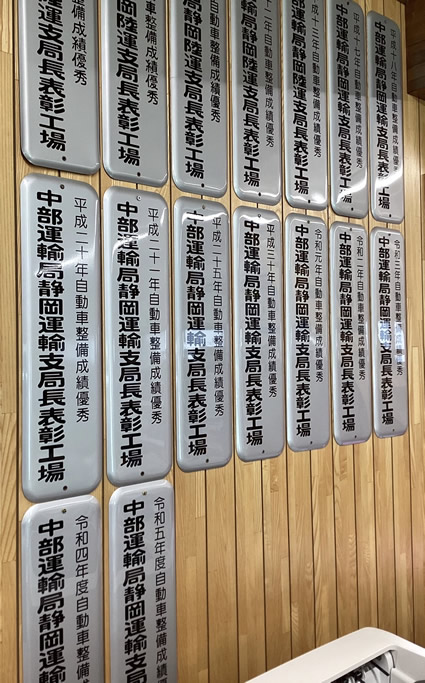 備成績優秀
運支局長表彰工場
車整備成績優秀
岡陸運支局長表彰工場
動車整備成績優秀
局静岡陸運支局長表彰工場
二年自動車整備成績優秀
局静岡陸運支局長表彰工場
十三年自動車整備成績優秀
局静岡陸運支局長表彰工場
平成十七年自動車整備成績優秀
中部運輸局静岡運輸支局長表彰工場
平成十八年自動車整備成績優秀
中部運輸局静岡運輸支局長表彰工場
平成二十年自動車整備成績優秀
中部運輸局静岡運輸支局長表彰工場
平成二十一年自動車整備成績優秀
中部運輸局静岡運輸支局長表彰工場
平成二十五年自動車整備成績優秀
中部運輸局静岡運輸支局長表彰工場
平成三十年自動車整備成績優秀
中部運輸局静岡運輸支局長表彰工場
令和元年自動車整備成績優秀
中部運輸局静岡運輸支局長表彰工場
令和二年自動車整備成績優秀
中部運輸局静岡運輸支局長表彰工場
令和三年自動車整備成績優秀
中部運輸局静岡運輸支局長表彰工場
令和四年度自動車整備成
中部運輸局静岡運輸支
令和五年度自動車整備成績
中部運輸局静岡運輸支局